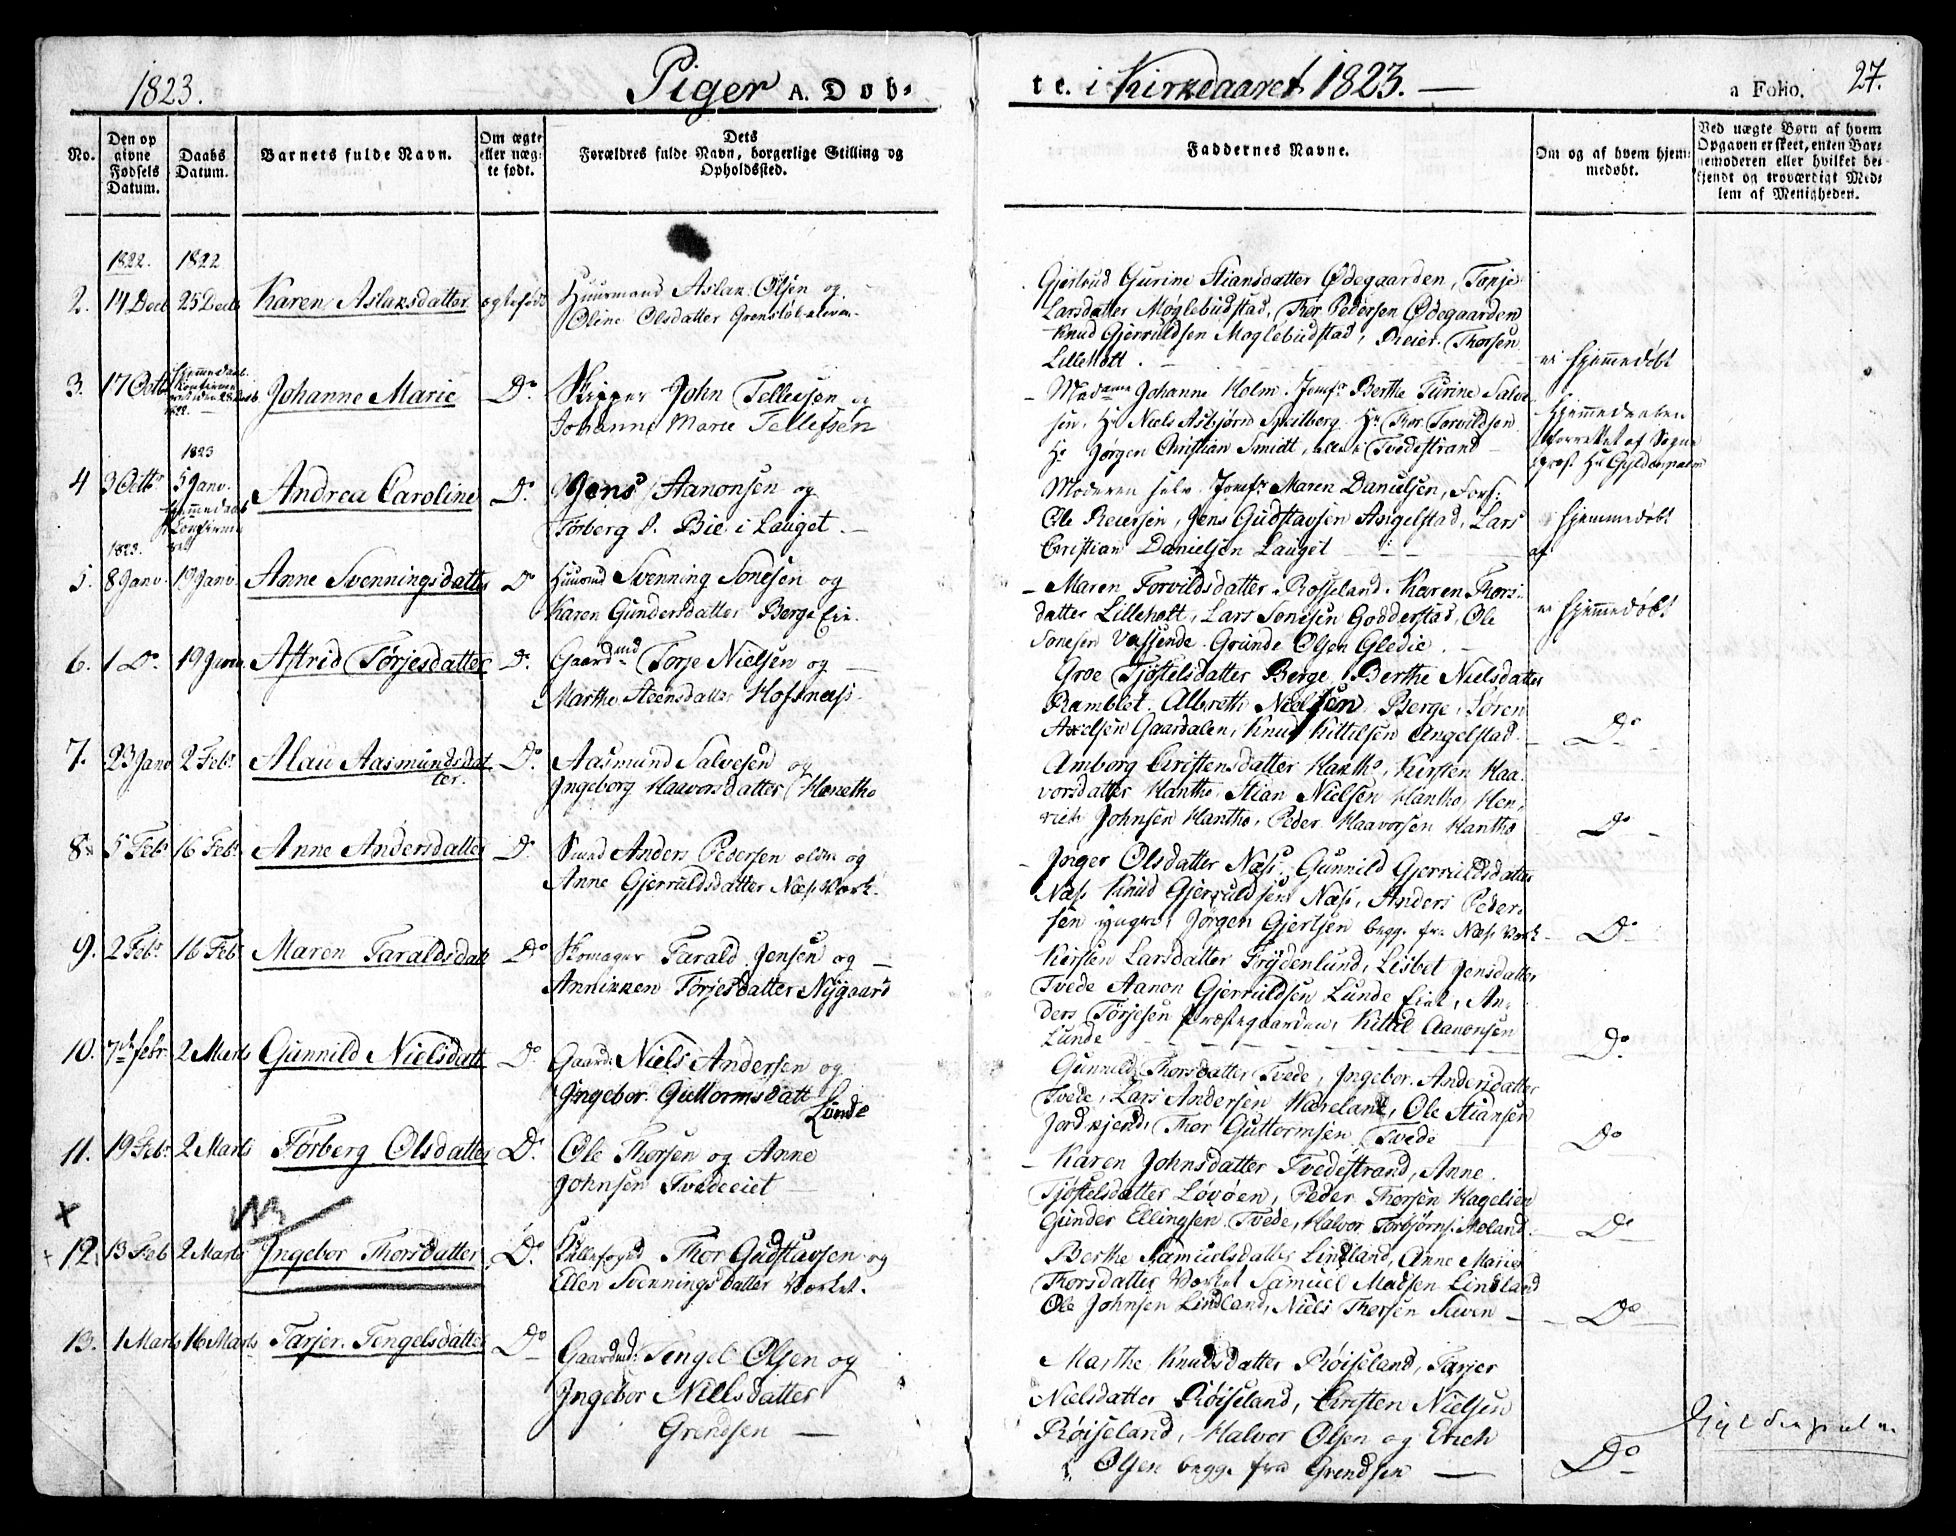 1823.
Piger A. Døb-
te. i Kirkeaaret 1823. —
a Folio. 27.
No.
Den op
givne
Fødsels
Datum.
Daabs
Datum.
Barnets fulde Navn.
Om ægte
eller uæg-
te født.
Dets
Forældres fulde Navn, borgerlige Stilling og
Opholdssted.
Faddernes Navne.
Om og af hvem hjem-
medøbt.
Ved uægte Børn af hvem
Opgaven er skeet, enten Bar-
nemoderen eller hvilket be-
kjendt og troværdigt Med-
lem af Menigheden.
1822. 1822
2. 14 Decb 25 Decb Karen Aslaksdatter ægtefødt Huusmand Aslak Olsen og
Oline Olsdatter
Gjertrud Gurine Stiansdatter Ødegaarden, Tonje
Larsdatter Møglebudstad, Thor Pedersen Ødegaarden
Knud Gjerruldsen Moglebudstad, Reier Thorsen
Lilleholt. — ei hjemmedøbt
3. 17 Octb Hjemmedaab
1822. Johanne Marie Do. Skipper John Tellefsen og
Johanne Marie Tellefsen
Madame Johanne Holm. Jomfr Berthe Turine Salve-
sen. Hr Niels Asbjørn Spilberg. Hr Thor Torvildsen
Hr Jørgen Christian Smidt, alle i Tvedestrand
Hjemmedaaben
forrettet af Sogne
præst Hr Gyldenpalm
1823
4 3 Octbr 5 Janv.
Hjemmedaab
Andrea Caroline Do. Jens Aanonsen og
Torberg S. Bie i Lauget. —
Moderen selv. Jomfr Maren Danielsen,
Ole Reiersen, Jens Gudstavsen Angelstad, Lars
Christian Danielsen Lauget
hjemmedøbt
af
1823.
5. 8 Janv. 19 Janv. Anne Svenningsdatter Do Huusmd Svenning Sonesen og
Karen Gundersdatter Berge Eie.
Maren Torvildsdatter Rosseland. Karen Thors-
datter Lilleholt, Lars Sonesen Godderstad, Ole
Sonesen Vassende. Grunde Olsen Gledie.
ei hjemmedøbt
6. 1 Do. 19 Janv. Astrid Tørjesdatter Do. Gaardmd Torje Nielsen og
Marthe Steensdatter Hofsnæss.
Groe Tjøstelsdatter Berge. Berthe Nielsdatter
Ramblet. Albreth Nielsen Berge, Søren
Axelsen Gaardalen, Knud Kittelsen Angelstad. Do
7. 23 Janv 2 Febr. Alau Aasmundsdat-
ter. Do. Aasmund Salvesen og
Ingeborg Haavorsdatter Hanetho
Amborg Cristensdatter Hantho, Kirsten Haa-
vorsdatter Hantho, Stian Nielsen Hantho, Hen-
rich Johnsen Hantho, Peder Haavorsen Hantho Do
8. 5 Febr 16 Febr. Anne Andersdatter Do. Smed Anders Pedersen ældre og
Anne Gjerruldsdatter Næs Værk.
Inger Olsdatter Næs. Gunnild Gjerruldsdatter
Næs. Knud Gjerruldsen Næs, Anders Peder-
sen yngre, Jørgen Gjertsen begge fra Næs Værk Do
9. 2 Febr 16 Febr Maren Taraldsdatt Do Skomager Tarald Jensen og
Annikken Torjesdatter Nygaard
Kirsten Larsdatter Frydenlund, Lisbet Jensdatter
Tvede Aanon Gjerruldsen Lunde Eiet, An-
ders Tørjesen Præstegaarden, Kittil Aanonsen
Lunde Do.
10. 7de febr. 2 Marts Gunnild Nielsdatt Do. Gaardm: Niels Andersen og
Ingebor Guttormsdatt
Lunde
Gunnild Thorsdatter Tvede, Ingebor Andersdatter
Tvede, Lars Andersen Hareland, Ole Stiansen
Jordkjend, Thor Guttormsen Tvede Do
11. 19 Febr. 2 Marts Torberg Olsdatter Do. Ole Thorsen og Anne
Johnsen Tvedeeiet —
Karen Johnsdatter Tvedestrand, Anne
Tjøstelsdatter Løvøen, Peder Thorsen Hagelien
Gunder Ellingsen Tvede, Halvor Torbjørns. Moland Do
x
12. 13 Feb 2 Marts Ingebor Thorsdatter Do. Kullefoged Thor Gudstavsen og
Ellen Svenningsdatter Værket.
Berthe Samuelsdatter Lindland, Anne Marie
Thorsdatter Værket Samuel Madsen Lindland
Ole Johnsen Lindland, Niels Thorsen — Do
13. 1 Marts 16 Marts Tarjer Tengelsdatter Do Gaardmd: Tengel Olsen og
Ingebor Nielsdatter
Grendsen —
Marthe Knudsdatter Røiseland, Tarjer
Nielsdatter Røiseland, Kirsten Nielsen
Røiseland, Halvor Olsen og Erich
Olsen begge fra Grendsen — Do
Gyldenpalm